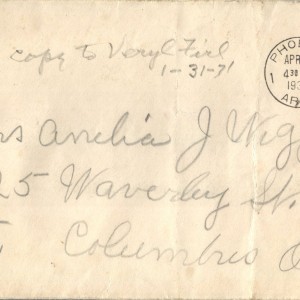 copy to Veryl Firl
1-31-71
PHO
APR
4 38
193
AR
1
rs Amelia J Wigg
25 Waverley St.
Columbus O